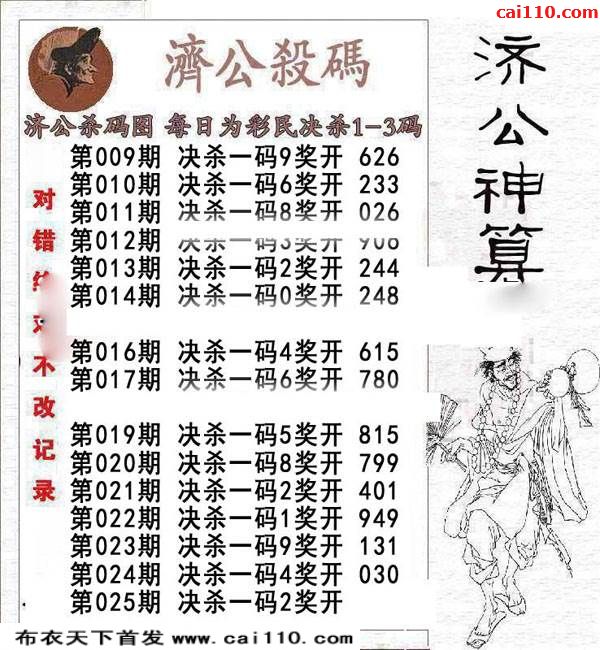 cai110.com
濟公殺碼
济公杀码图 每日为彩民决杀1-3码
第009期 决杀一码9奖开 626
第010期 决杀一码6奖开 233
第011期 决杀一码8奖开 026
第012期 决杀一码3奖开 908
第013期 决杀一码2奖开 244
第014期 决杀一码0奖开 248
第016期 决杀一码4奖开 615
第017期 决杀一码6奖开 780
第019期 决杀一码5奖开 815
第020期 决杀一码8奖开 799
第021期 决杀一码2奖开 401
第022期 决杀一码1奖开 949
第023期 决杀一码9奖开 131
第024期 决杀一码4奖开 030
第025期 决杀一码2奖开
对错不改记录
济公神算
布衣天下首发 www.cai110.com